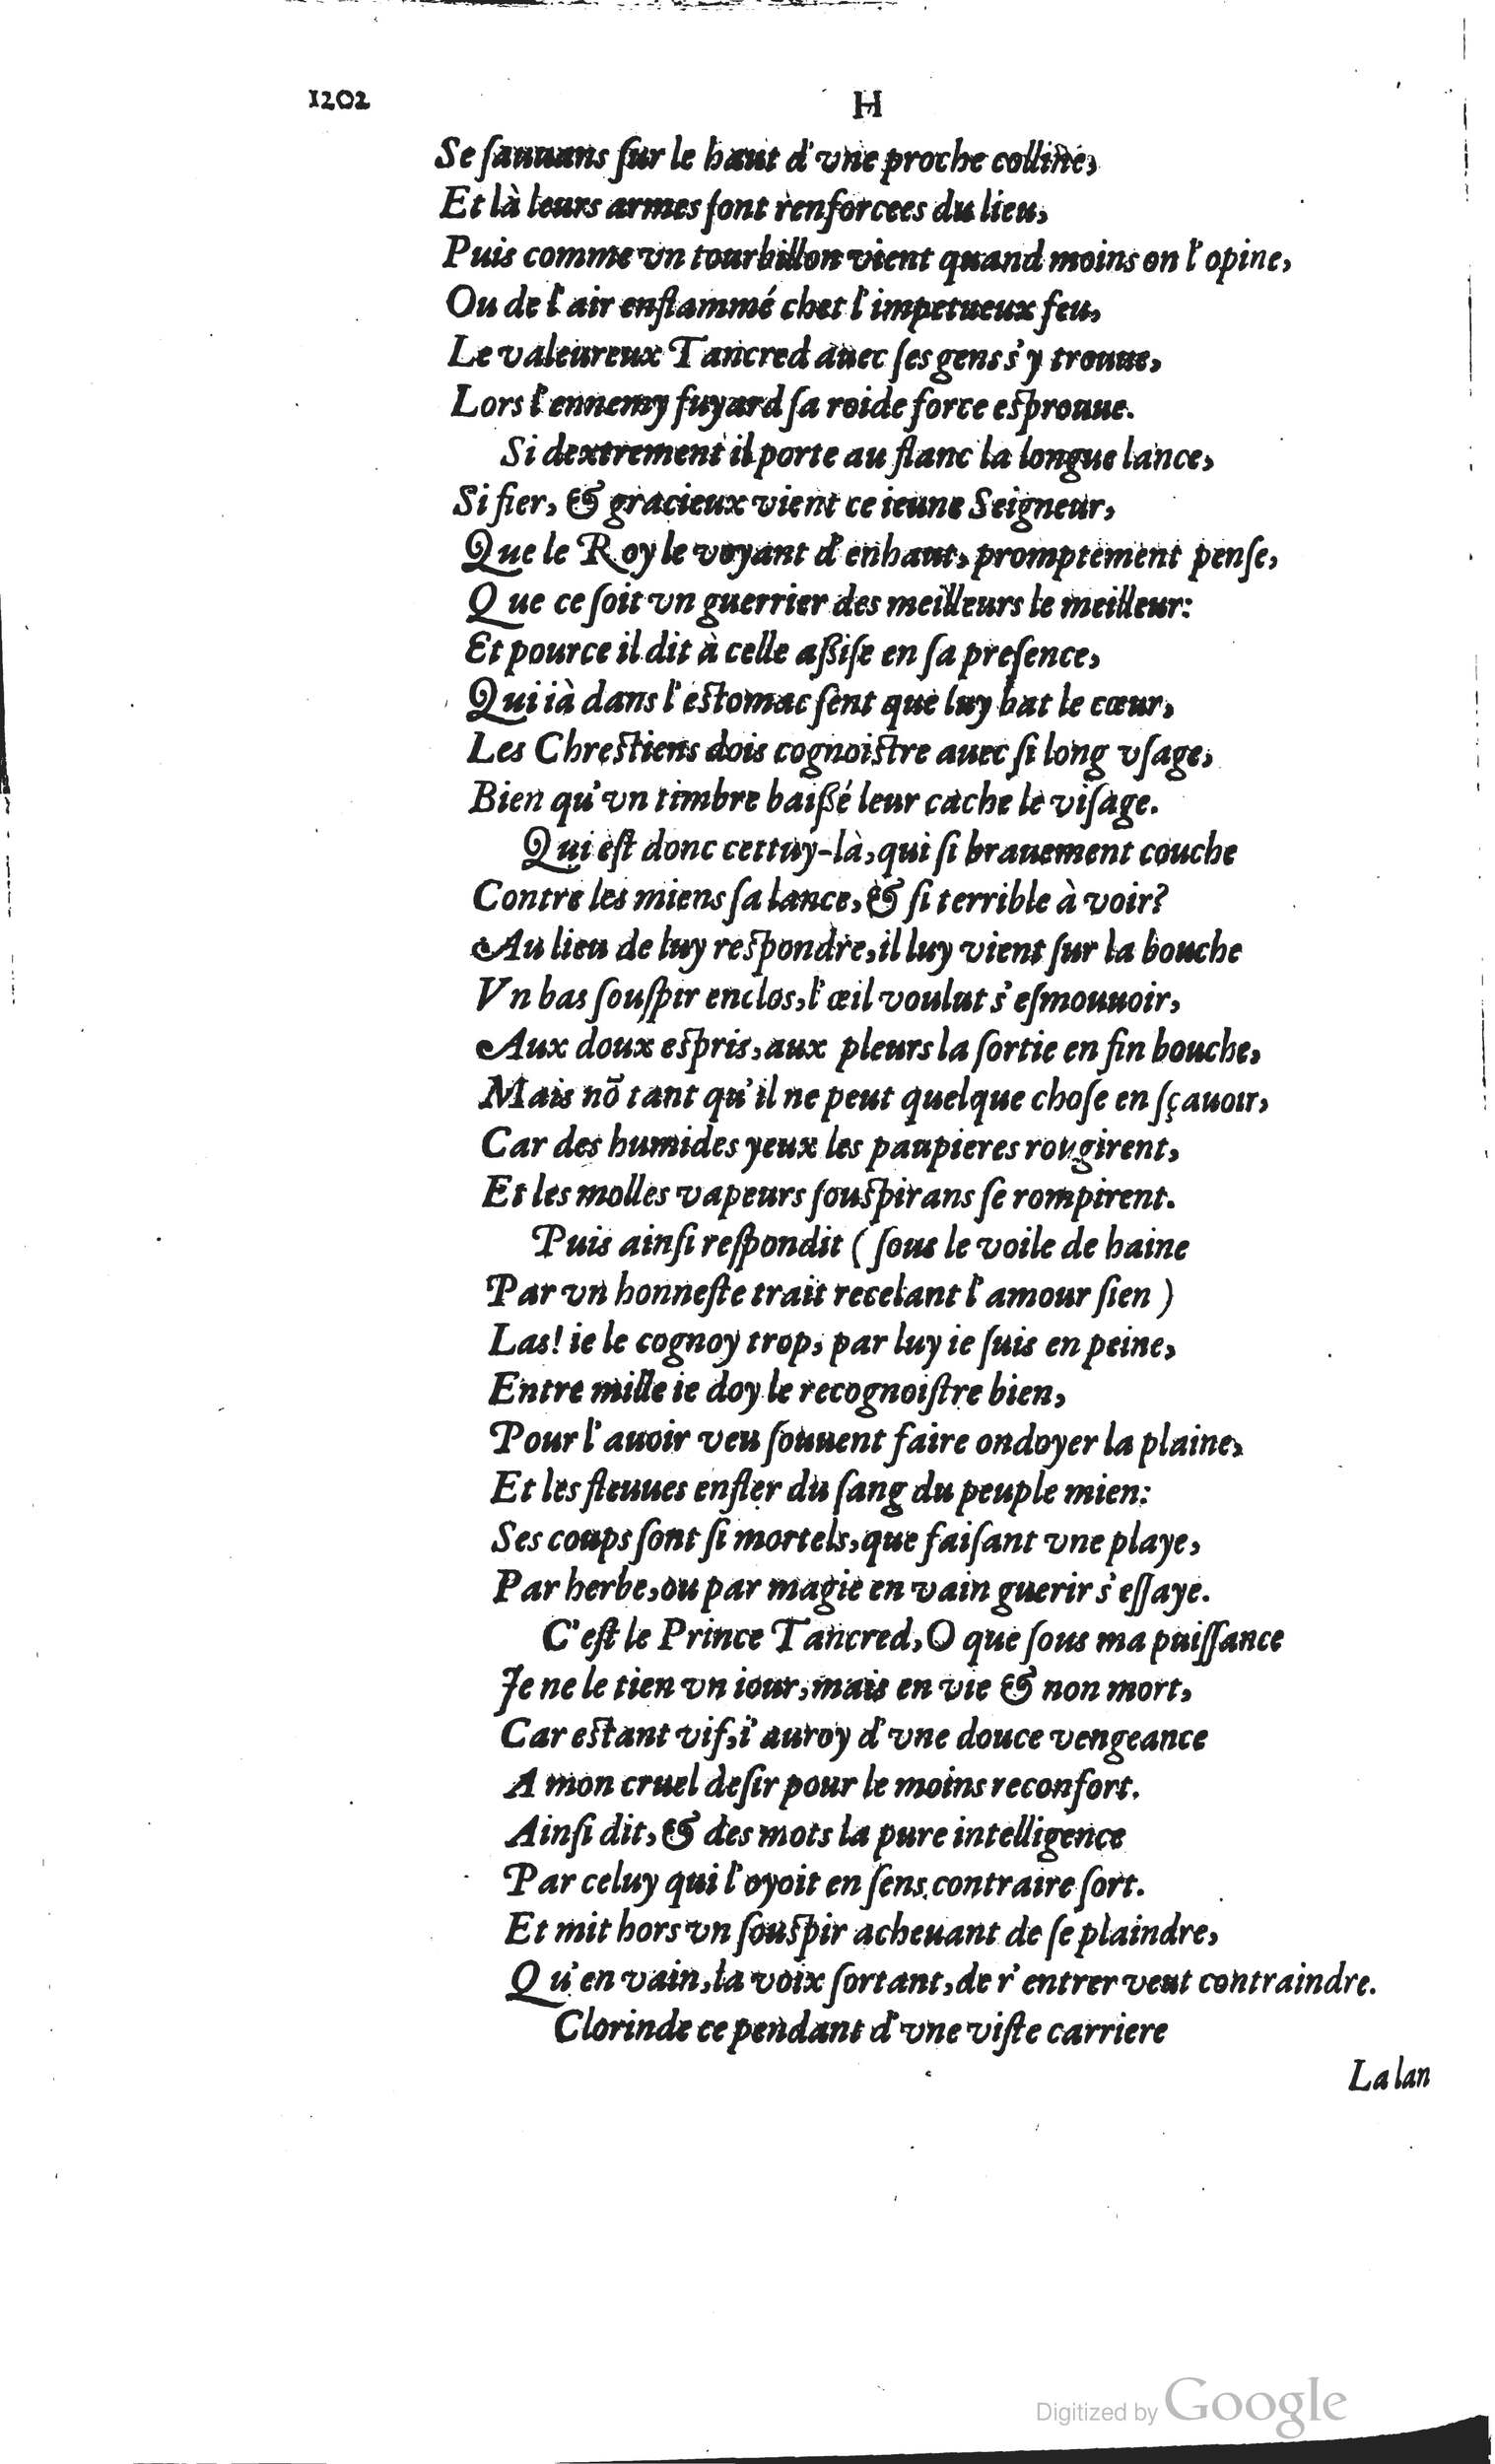 1202
H
Se ſauuans ſur le haut d'vne proche colline,
Et là leurs armes ſont renforcees du lieu,
Puis comme vn tourbillon vient quand moins on l'opine,
Ou de l'air enflammé chet l'impetueux feu,
Le valeureux Tancred auec ſes gens s'y trouue,
Lors l'ennemy fuyard ſa roide force eſprouue.
Si dextrement il porte au flanc la longue lance,
Si fier, & gracieux vient ce ieune Seigneur,
Que le Roy le voyant d'enhaut, promptement penſe,
Que ce ſoit vn guerrier des meilleurs le meilleur:
Et pource il dit à celle aßiſe en ſa preſence,
Qui ià dans l'eſtomac ſent que luy bat le cœur,
Les Chreſtiens dois cognoiſtre auec ſi long vſage,
Bien qu'vn timbre baißé leur cache le viſage.
Qui eſt donc cettuy-là, qui ſi brauement couche
Contre les miens ſa lance, & ſi terrible à voir?
Au lieu de luy reſpondre, il luy vient ſur la bouche
Vn bas ſouſpir enclos, l'œil voulut s'eſmouuoir,
Aux doux eſpris, aux pleurs la ſortie en fin bouche,
Mais nõ tant qu'il ne peut quelque choſe en ſçauoir,
Car des humides yeux les paupieres rougirent,
Et les molles vapeurs ſouſpirans ſe rompirent.
Puis ainſi reſpondit (ſous le voile de haine
Par vn honneſte trait recelant l'amour ſien)
Las! ie le cognoy trop, par luy ie ſuis en peine,
Entre mille ie doy le recognoiſtre bien,
Pour l'auoir veu ſouuent faire ondoyer la plaine,
Et les fleuues enfler du ſang du peuple mien:
Ses coups ſont ſi mortels, que faiſant vne playe,
Par herbe, ou par magie en vain guerir s'eſſaye.
C'eſt le Prince Tancred, O que ſous ma puiſſance
Je ne le tien vn iour, mais en vie & non mort,
Car eſtant vif, i'auroy d'vne douce vengeance
A mon cruel deſir pour le moins reconfort.
Ainſi dit, & des mots la pure intelligence
Par celuy qui l'oyoit en ſens contraire ſort.
Et mit hors vn ſouſpir acheuant de ſe plaindre,
Qu'en vain, la voix ſortant, de r'entrer veut contraindre.
Clorinde ce pendant d'vne viſte carriere
La lan
Digitized by Google